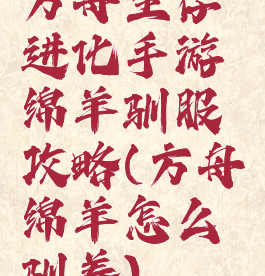 方舟生存
进化手游
绵羊驯服
攻略(方舟
绵羊怎么
驯养)